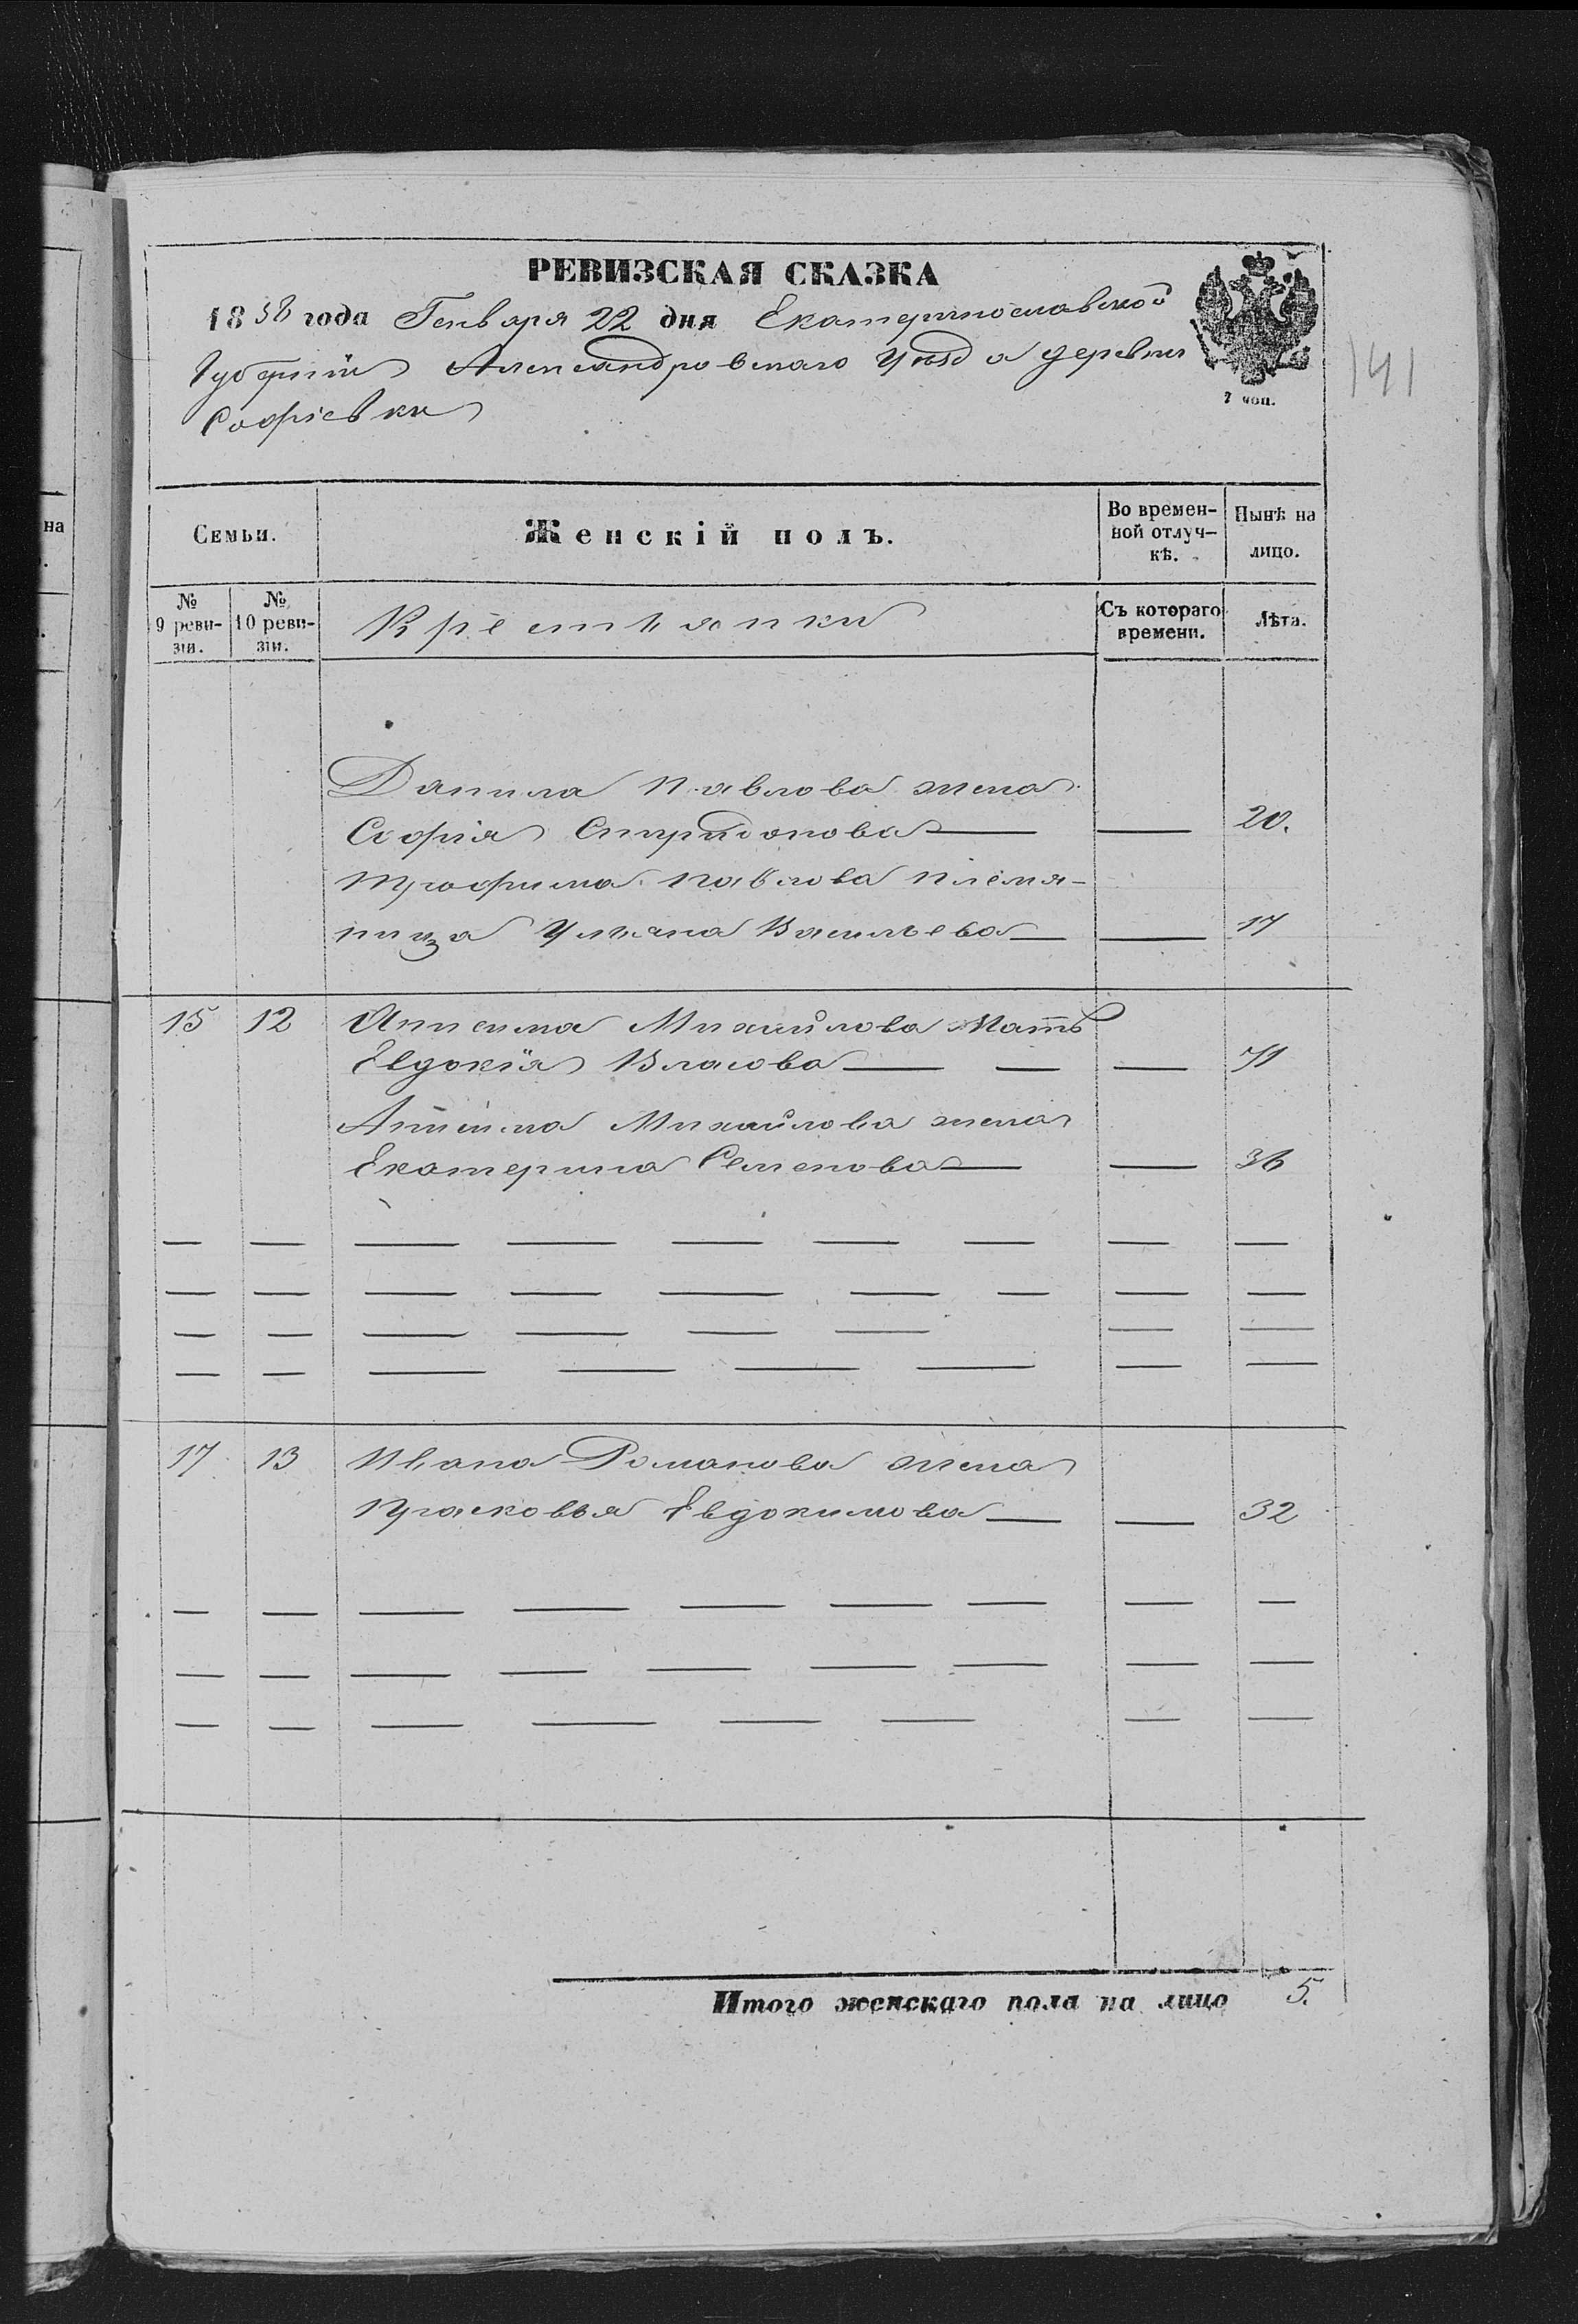 РЕВИЗСКАЯ СКАЗКА
1858 года Генваря 22 дня Екатеринославской
Губерніи Александровскаго Уѣзда деревни
Софіевки
7 коп.
141
на
Семьи.
Женскій полъ.
Во времен-
ной отлуч-
кѣ.
Нынѣ на
лицо.
№
9 реви-
зіи.
№
10 реви-
зіи.
Крестьянки
Съ котораго
времени.
Лѣта.
Данила Павлова жена
Софія Спиридонова — — 20.
Трофима Павлова племя-
ница Ульяна Васильева — — 17
15 12 Анисима Михайлова Мать
Евдокія Власова — — — 71
Анисима Михайлова жена
Екатерина Семенова — — 36
17 13 Ивана Романова жена
Прасковья Евдокимова — — 32
Итого женскаго пола на лицо 5.